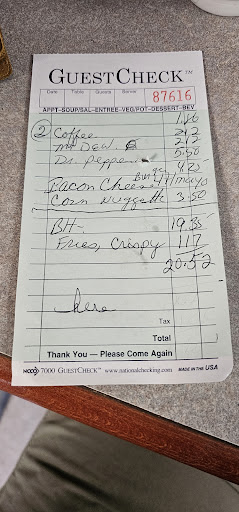 GUESTCHECK™
Date Table Guests Server 87616
APPT-SOUP/SAL-ENTREE-VEG/POT-DESSERT-BEV
1.86
② Coffee 2.12
Mt Dew. 2.12
Dr. Pepper 5.50
Bacon Cheese w/mayo
Corn Nuggets 3.50
BH- 19.35
Fries, Crispy 117
20.52
Tax
Total
Thank You — Please Come Again
7000 GUESTCHECK™ www.nationalchecking.com MADE IN THE USA